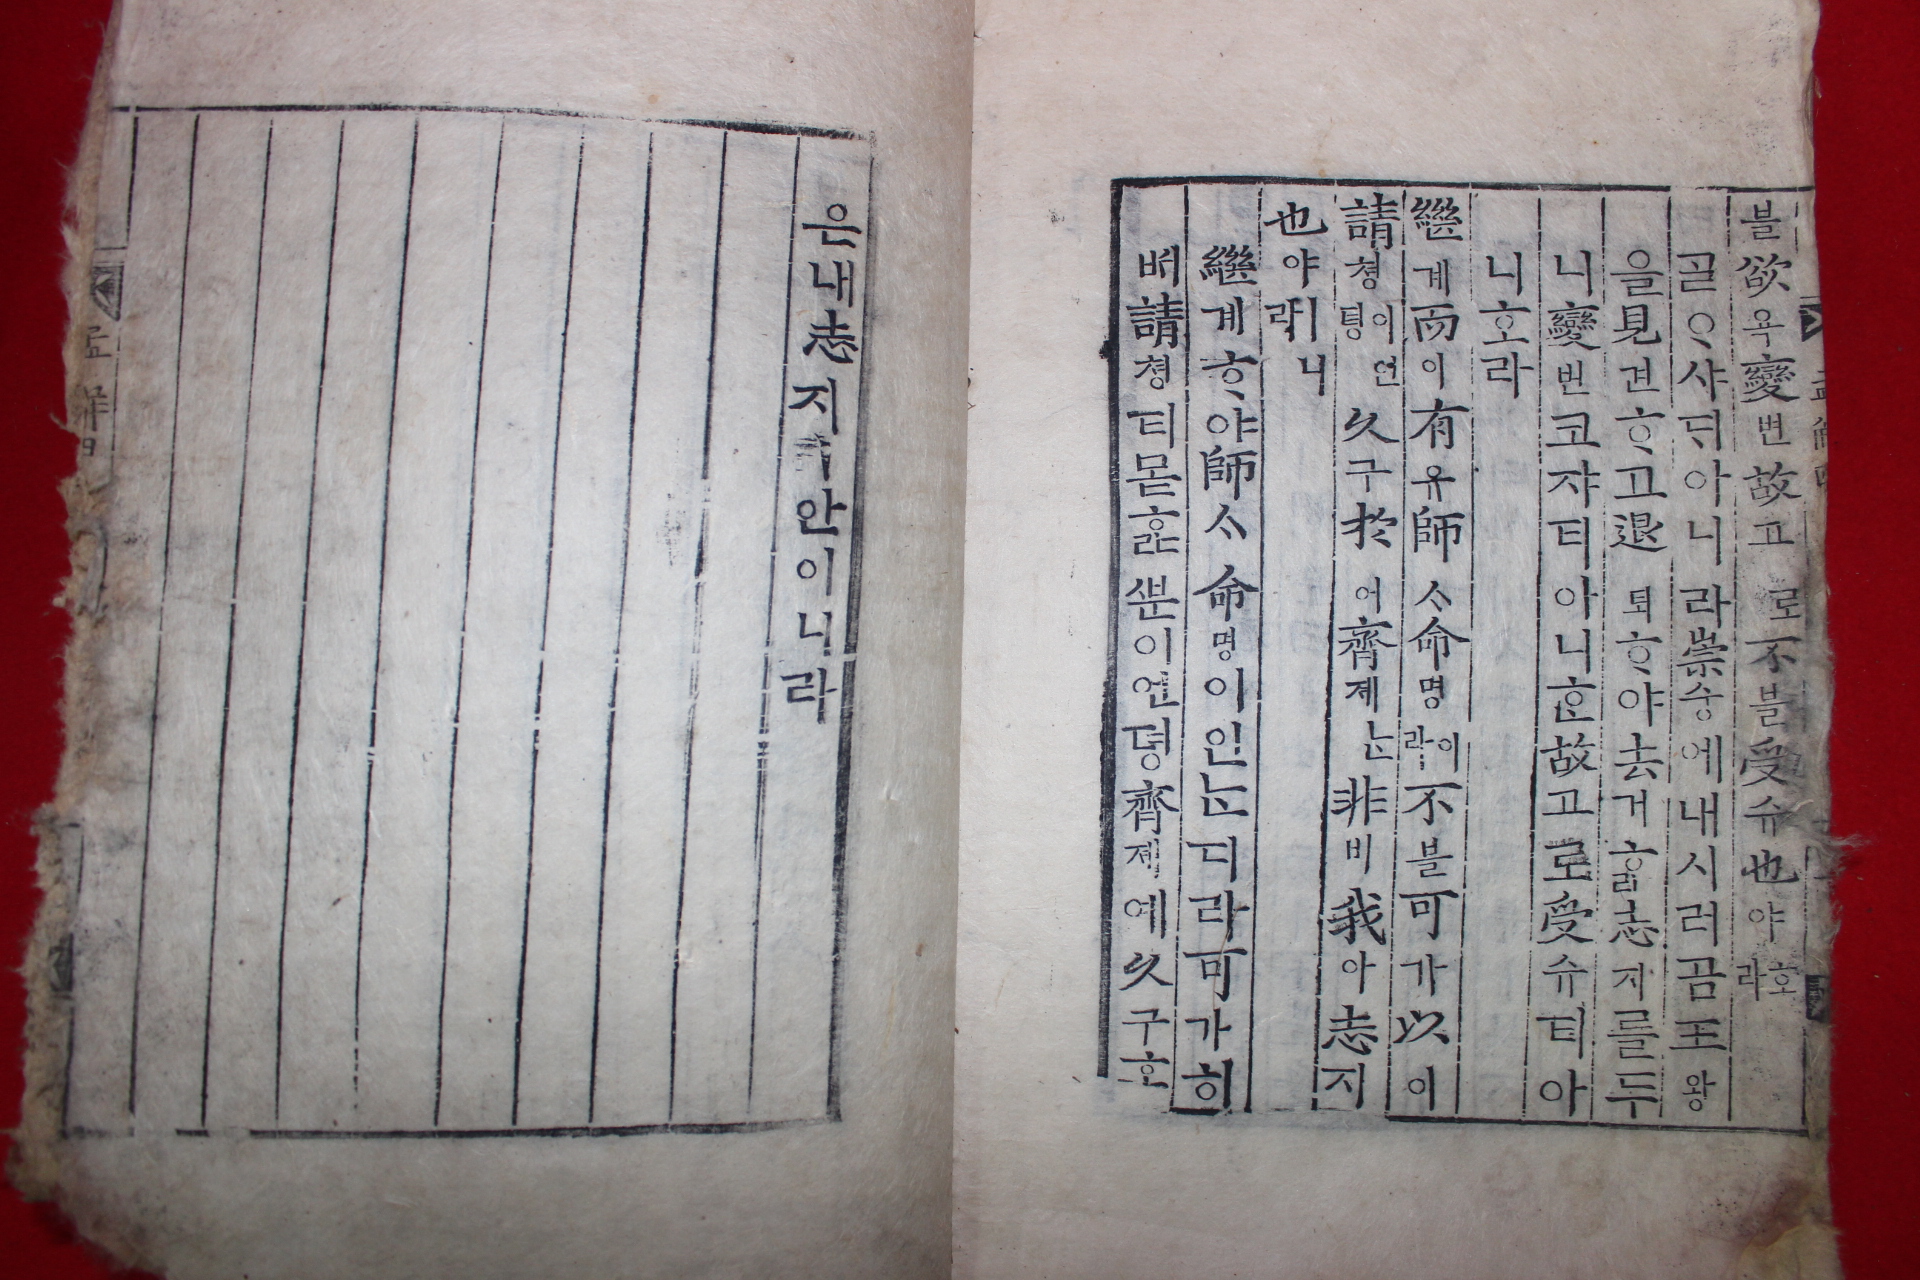 블欲욕變변故고로不블受슈也야호라
ᄀᆞᆯᄋᆞ샤ᄃᆡ아니라崇슝에내시러곰王왕
을見견ᄒᆞ고退퇴ᄒᆞ야去거ᄒᆞᆯ志지를두
니變변코쟈티아니ᄒᆞᆫ故고로受슈티아
니호라
繼계而이有유師ᄉᆞ命명이라不블可가以이
請쳥이언뎡久구於어齊졔ᄂᆞᆫ非비我아志지
也야ㅣ니라
繼계ᄒᆞ야師ᄉᆞ命명이인ᄂᆞᆫ디라可가히
ᄡᅥ請쳥티몯ᄒᆞᆯᄲᅮᆫ이언뎡齊졔예久구호
은내志지안이니라